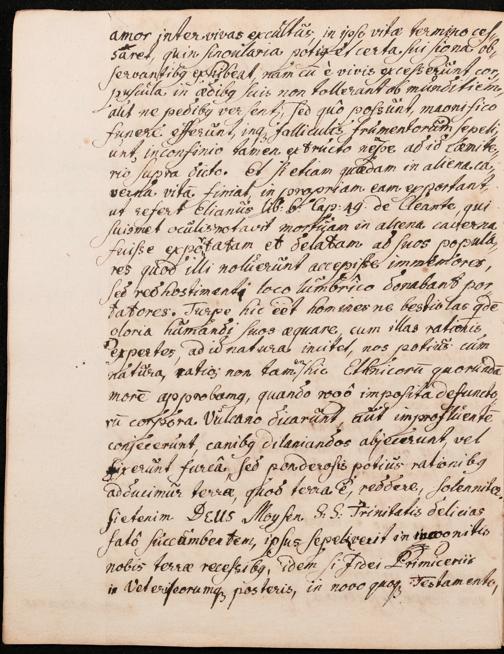 amor inter vivas excultus, in ipso vitæ termino ces-
saret, quin singularia potius et certa sui signa ob-
servantibq exhibeat, nam cū è vivis excesserunt cor-
puscula, in ædibq suis non tollerant ob munditiem,
aut ne pedibq versent, sed quô possunt, magnifico
funere efferunt, inq folliculis frumentorum sepeli-
unt, in confinio tamen extructo neṁpe ad id cæmite-
rio supra dicto. Et si etiam quædam in aliena ca-
verna vitā finiat, in propriam eam exportant,
ut refert Elianus lib: 6. Cap: 49. de Cleante, qui
suismet oculis notavit mortuam in aliena caverna
fuisse exportatam et delatam ad suos popula-
res quod illi noluerunt accepisse immemores,
sed redhostimenti loco lumbrico donabant por-
tatores. Turpe hic eêt homines ne bestiolas qde
gloria humandi suos æquare, cum illas rationis
expertes, ad id natura incitet, nos potius cum
natura, ratio; non tam hic Ethnicorū quorunda
morē approbamq, quando rogô imposita defuncto-
rū corpora Vulcano dicarunt, aut in profluente
conjecerunt, canibq dilaniandos abjecerunt, vel
furcâ. Sed ponderosis potius rationibq
adducimur terræ, quod terra ê, reddere, solenniter.
Sietenim DEUS Moysen S.S. Trinitatis delicias
fatô succumbentem, ipsus sepeliverit in incognitis
nobis terræ recessibq, idem si fidei Primicerii
in Veteri eorumq posteris, in novo quoq Testamento,